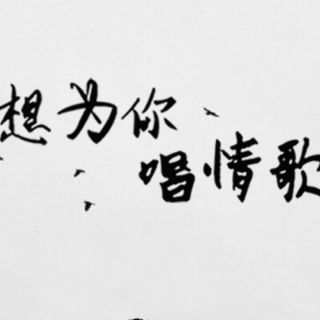 想为你
唱情歌